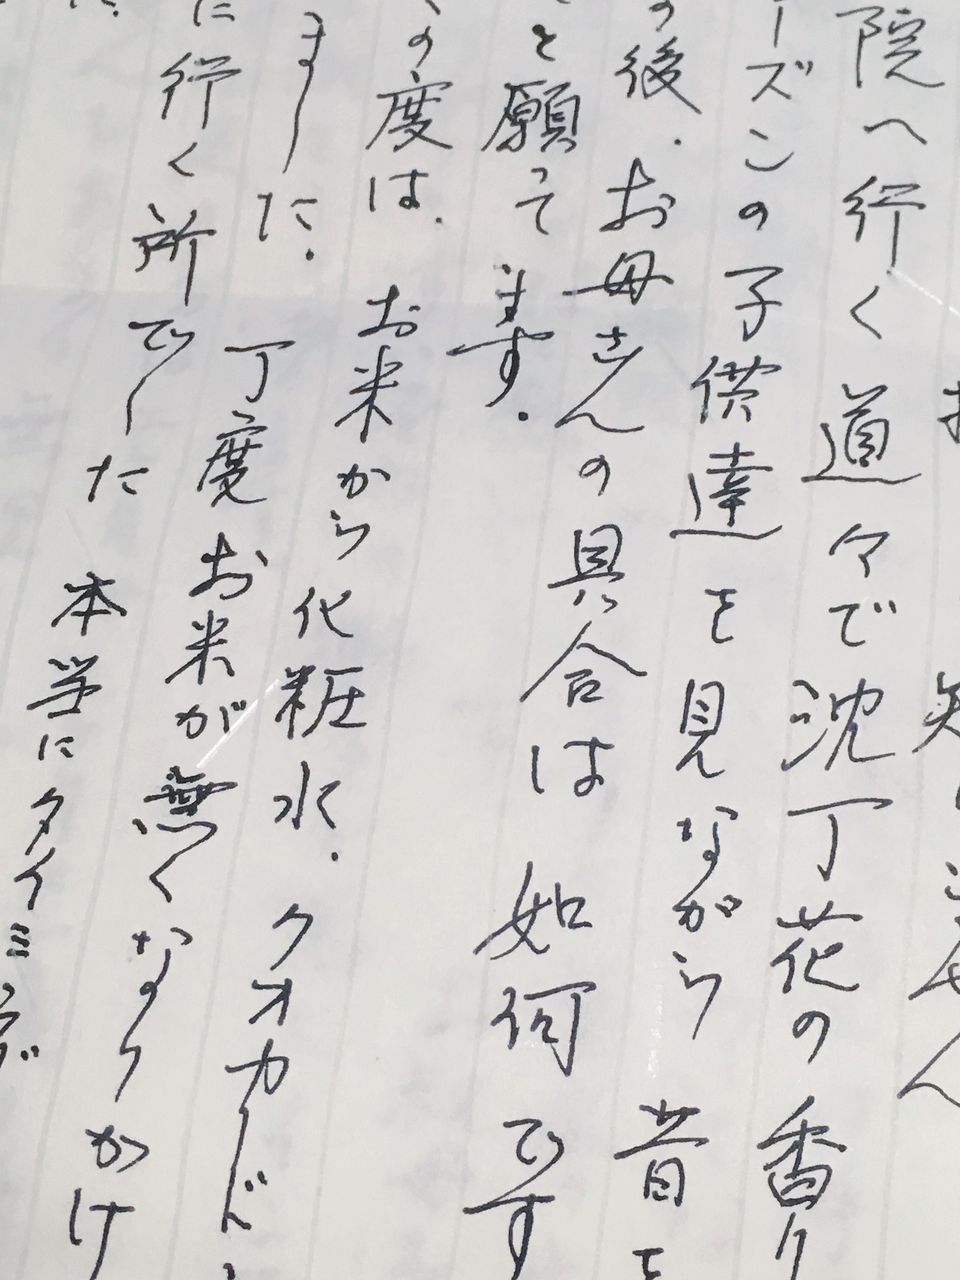 院へ行く道々で沈丁花の香り
ーズンの子供達を見ながら 昔を
の後、お母さんの具合は 如何です
と願って ます。
の度は、お米から化粧水、クオカード
ました。丁度お米が無くなりかけ
に行く所でした 本当にタイミング